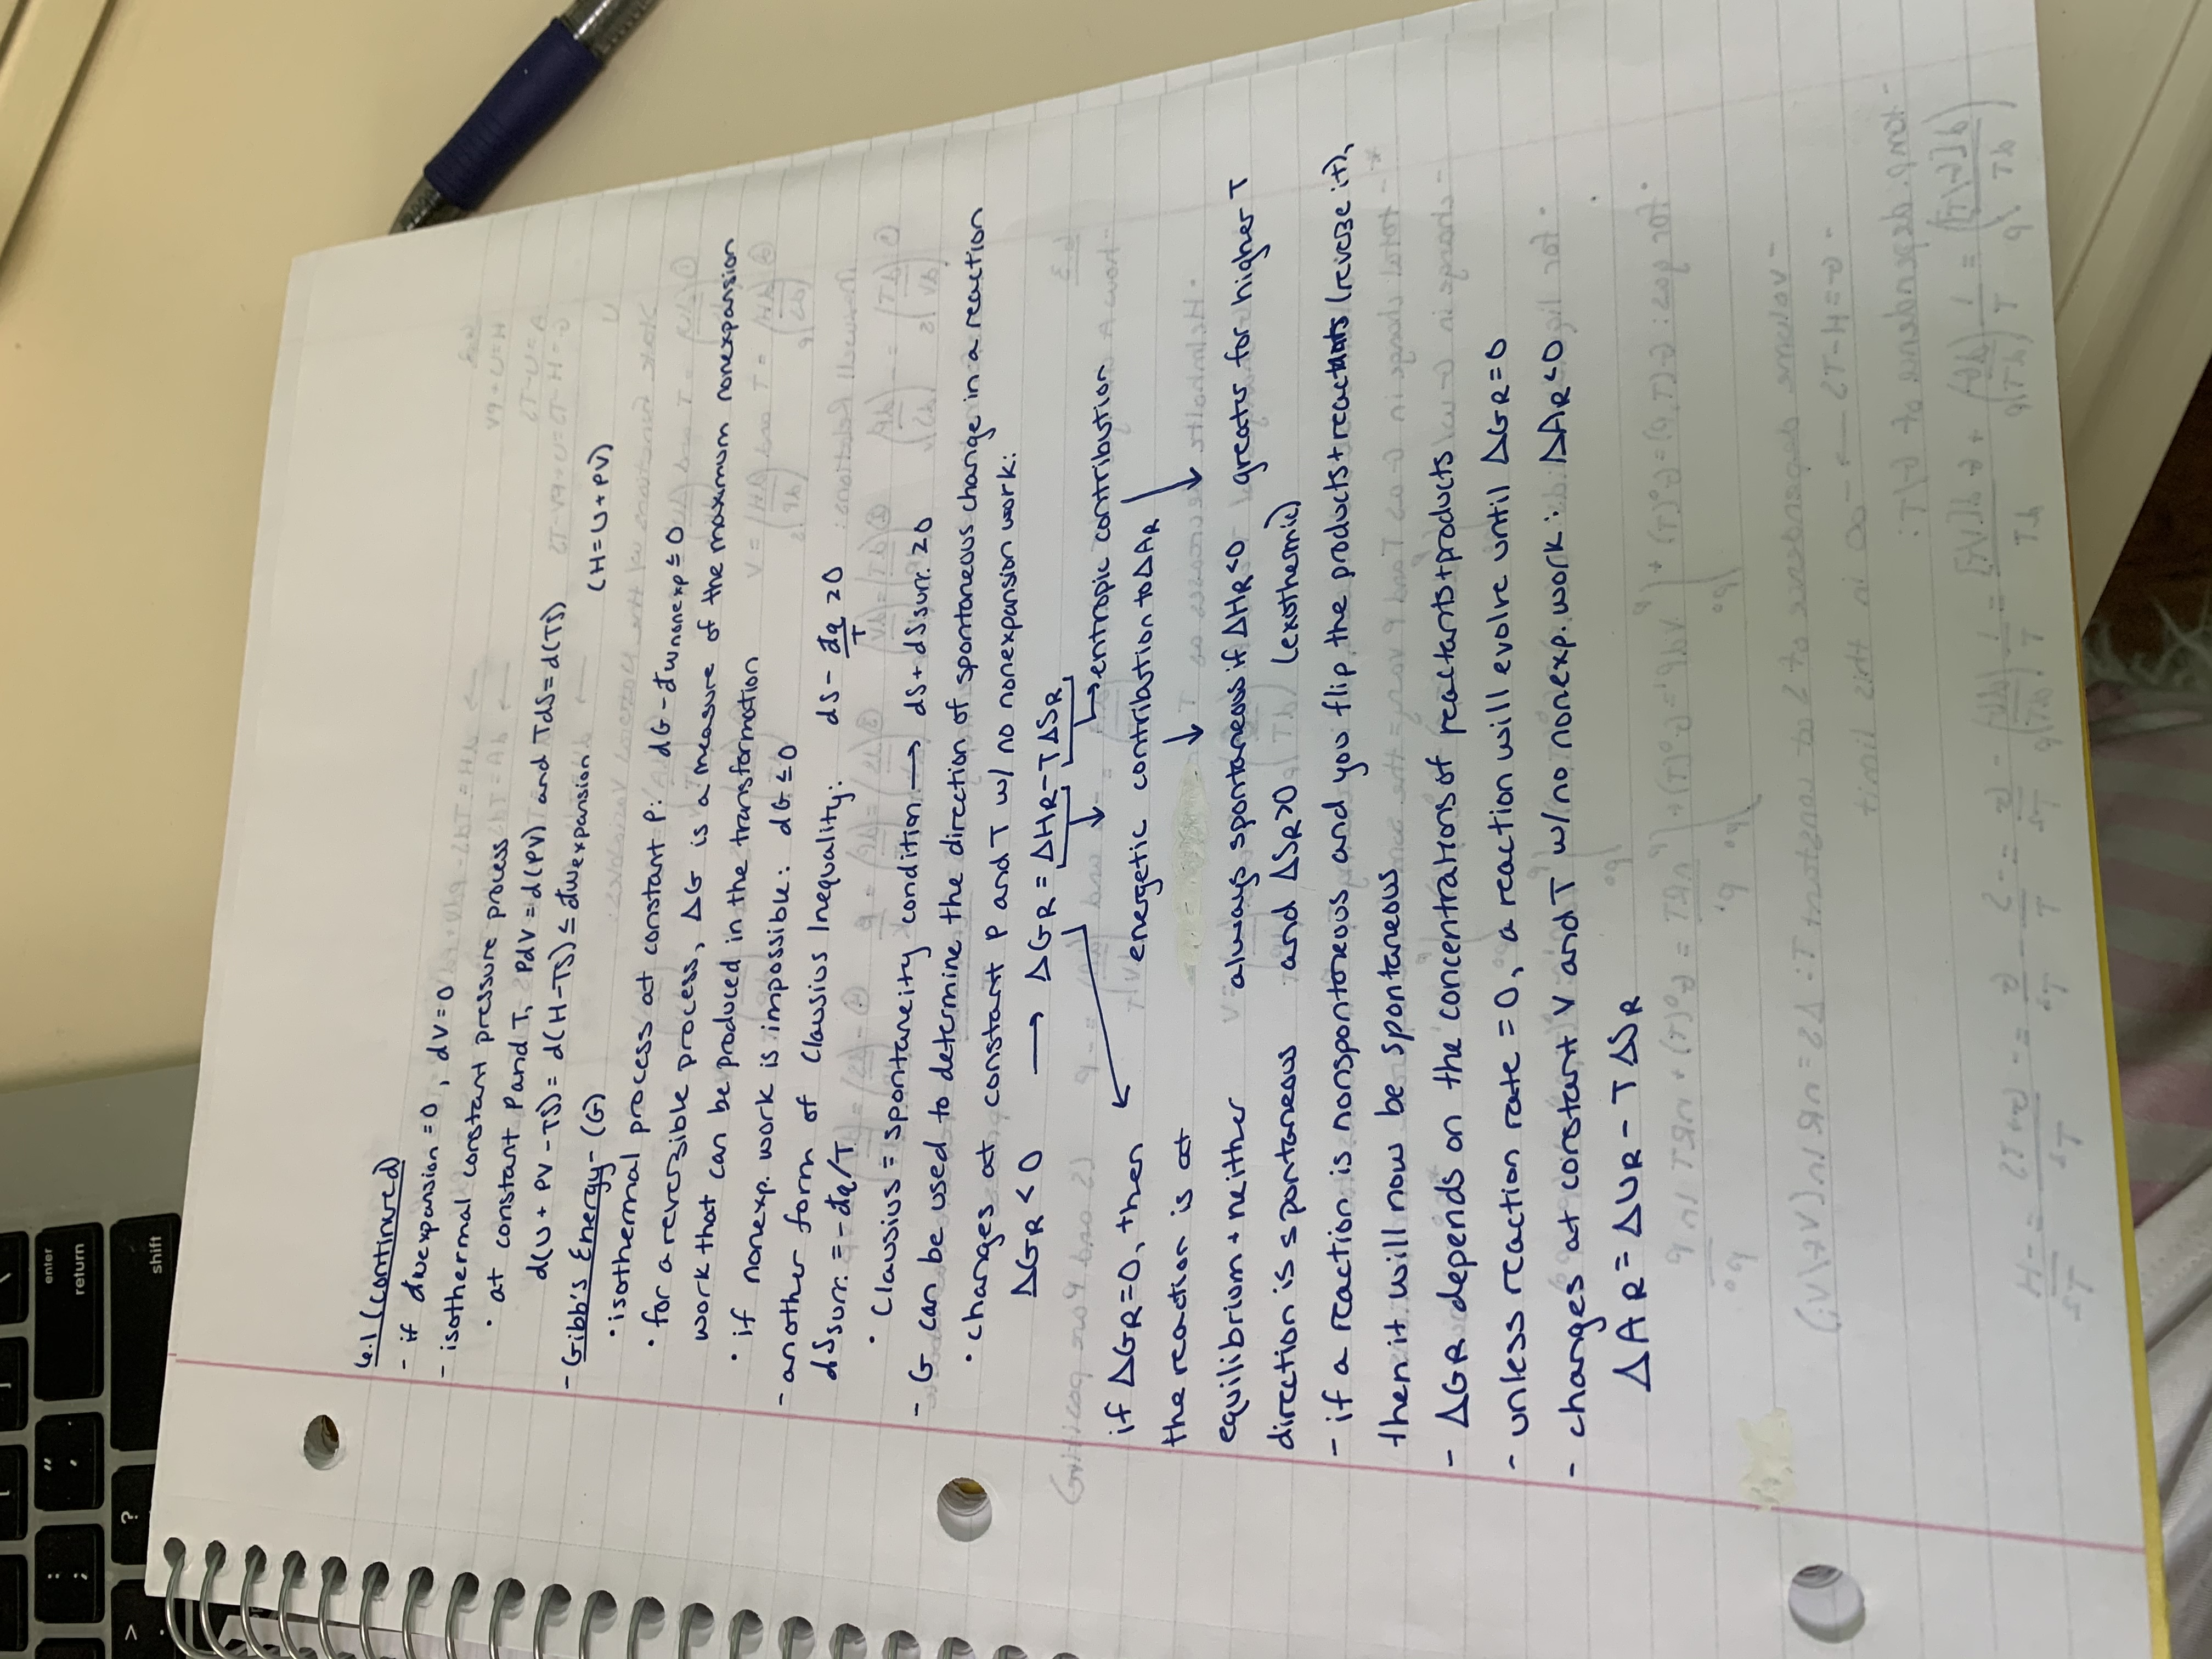 enter
return
shift
6.1 (continued)
- if đwexpansion = 0, dV = 0
- isothermal constant pressure process
• at constant P and T, PdV = d(PV) and TdS = d(TS)
d(U + PV - TS) = d(H - TS) ≤ đwexpansion
(H = U + PV)
- Gibb's Energy - (G)
• isothermal process at constant P: dG - đwnonexp ≤ 0
• for a reversible process, ΔG is a measure of the maximum nonexpansion
work that can be produced in the transformation
• if nonexp. work is impossible: dG ≤ 0
- another form of Clausius Inequality: dS - đq/T ≥ 0
dSsurr. = -đq/T
• Clausius = spontaneity condition → dS + dSsurr. ≥ 0
- G can be used to determine the direction of spontaneous change in a reaction
• changes at constant P and T w/ no nonexpansion work:
ΔGR < 0 → ΔGR = ΔHR - TΔSR
entropic contribution
energetic contribution to ΔAR
if ΔGR = 0, then
the reaction is at
equilibrium + neither
direction is spontaneous
always spontaneous if ΔHR < 0
and ΔSR > 0 (exothermic)
greater for higher T
- if a reaction is nonspontaneous and you flip the products + reactants (reverse it),
then it will now be spontaneous
- ΔGR depends on the concentrations of reactants + products
- unless reaction rate = 0, a reaction will evolve until ΔGR = 0
- changes at constant V and T w/ no nonexp. work: ΔAR < 0
ΔAR = ΔUR - TΔSR